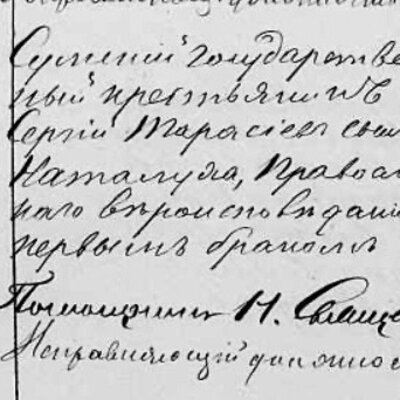 Сумскій государстве
ный крестьянинъ
Сергій Тарасіевъ сы
Наталуха, Правосл
наго вѣроисповѣданi
первымъ бракомъ
Помощникъ Н. Свяще
Исправляющій должнос